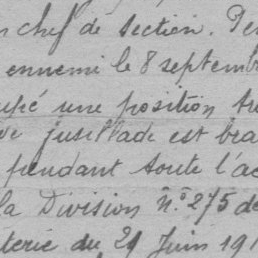 chef de section. Pen
ennemi le 8 septemb
upé une position
fusillade est bra
pendant toute l'ac
la Division n° 275 de
terie du 21 Juin 191